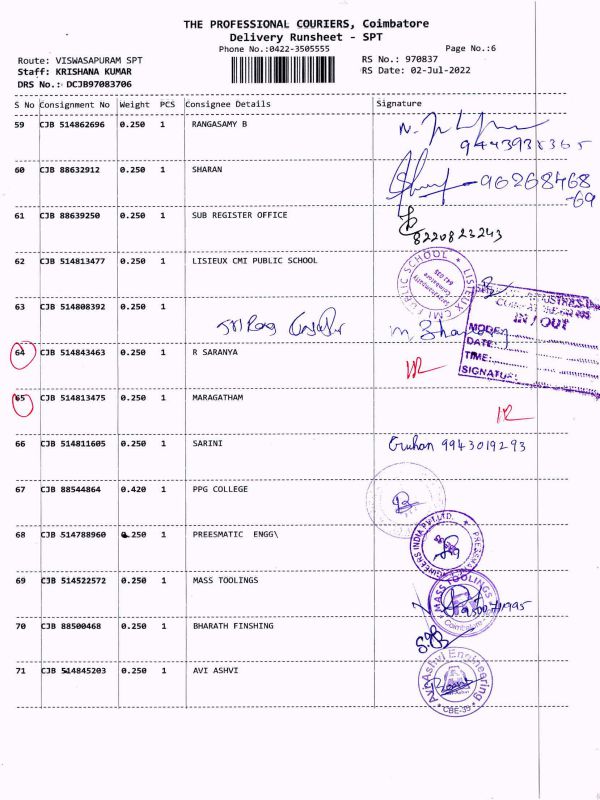 THE PROFESSIONAL COURIERS, Coimbatore
Delivery Runsheet - SPT
Phone No.:0422-3505555
Page No.:6
Route: VISWASAPURAM SPT
RS No.: 970837
Staff: KRISHANA KUMAR
RS Date: 02-Jul-2022
DRS No.: DCJB97083706
S No Consignment No Weight PCS Consignee Details Signature
59 CJB 514862696 0.250 1 RANGASAMY B
60 CJB 88632912 0.250 1 SHARAN
96268468
-69
61 CJB 88639250 0.250 1 SUB REGISTER OFFICE
8220823243
62 CJB 514813477 0.250 1 LISIEUX CMI PUBLIC SCHOOL
LISIEUX CMI PUBLIC SCHOOL
Coimbatore
641 035
63 CJB 514808392 0.250 1
IN / OUT
MODE:
DATE:
TIME:
SIGNATURE
64 CJB 514843463 0.250 1 R SARANYA
65 CJB 514813475 0.250 1 MARAGATHAM
66 CJB 514811605 0.250 1 SARINI
Guhan 9943019293
67 CJB 88544864 0.420 1 PPG COLLEGE
68 CJB 514788960 0.250 1 PREESMATIC ENGG\
69 CJB 514522572 0.250 1 MASS TOOLINGS
MASS TOOLINGS
Coimbatore
70 CJB 88500468 0.250 1 BHARATH FINSHING
71 CJB 514845203 0.250 1 AVI ASHVI
Avi Ashvi Engineering
CBE-35